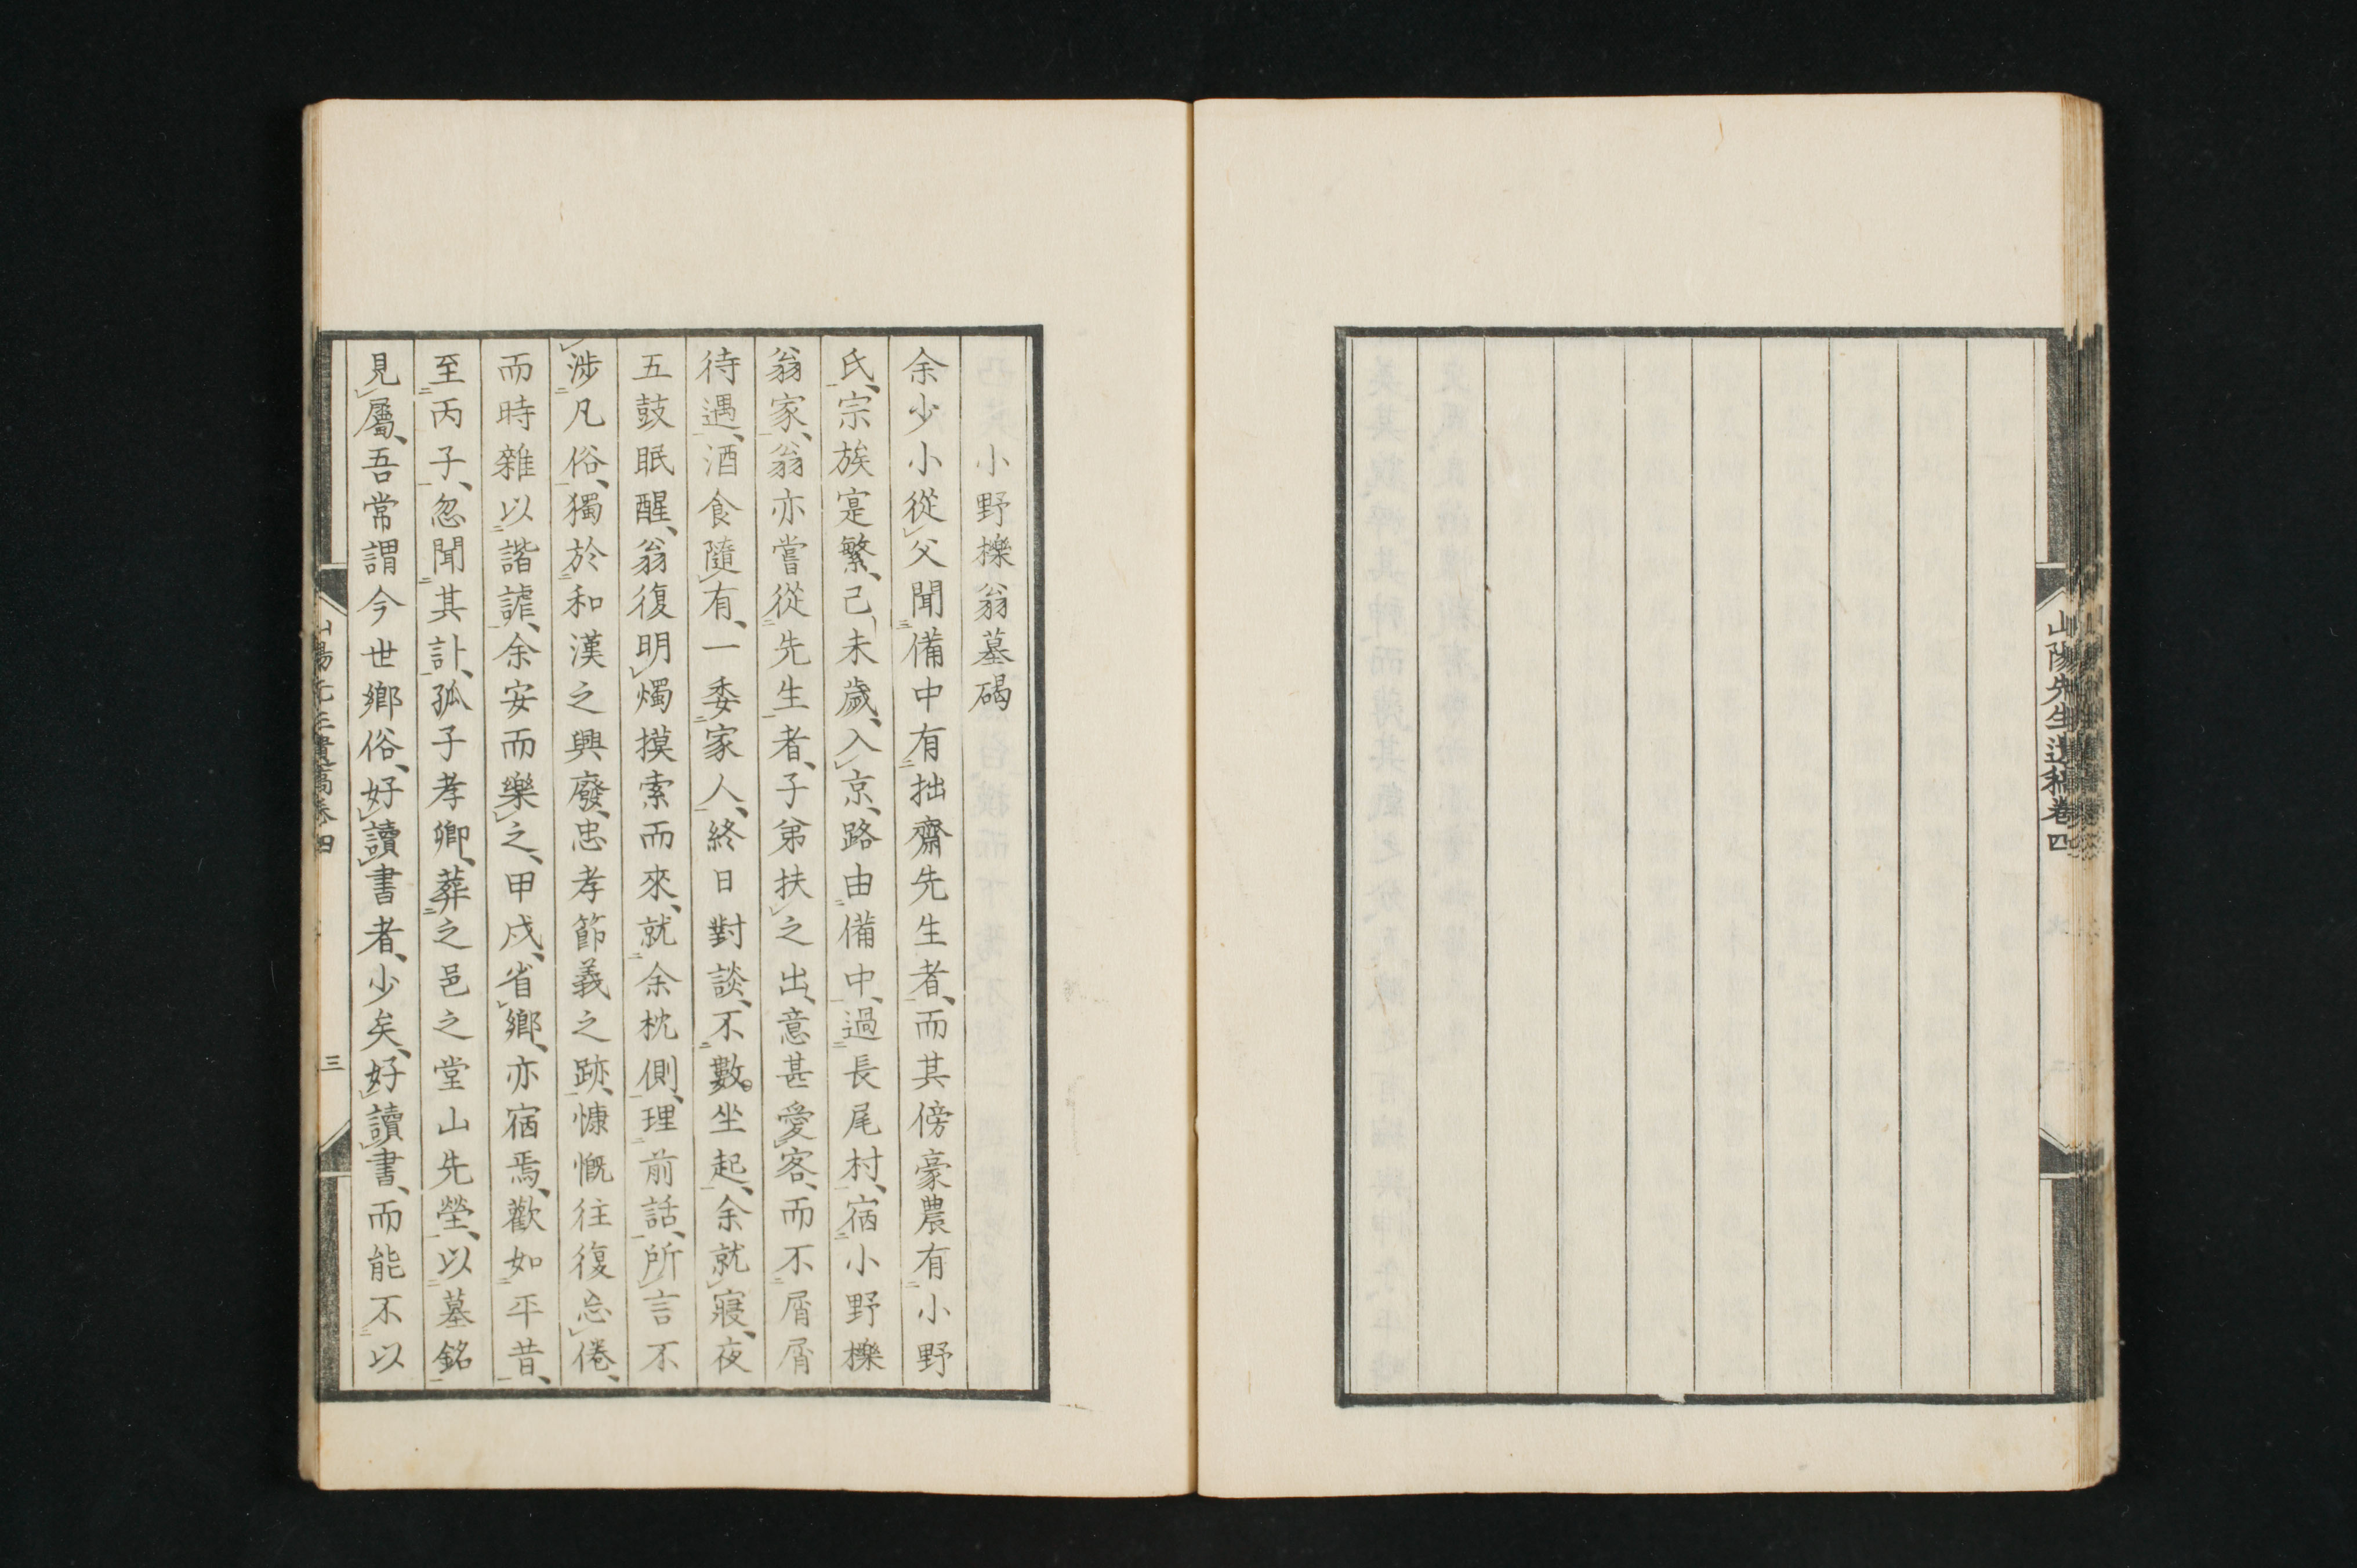 山陽先生遺稿卷四
小野櫟翁墓碣
余少小從父聞備中有拙齋先生者、而其傍豪農有小野
氏、宗族寔繁、己未歲、入京、路由備中、過長尾村、宿小野櫟
翁家、翁亦嘗從先生者、子弟扶之出、意甚愛客、而不屑屑
待遇、酒食隨有、一委家人、終日對談、不數坐起、余就寢、夜
五鼓眠醒、翁復明燭摸索而來、就余枕側、理前話、所言不
涉凡俗、獨於和漢之興廢、忠孝節義之跡、慷慨往復忘倦、
而時雜以諧謔、余安而樂之、甲戌、省鄉、亦宿焉、歡如平昔、
至丙子、忽聞其訃、孤子孝卿、葬之邑之堂山先塋、以墓銘
見屬、吾常謂今世鄉俗、好讀書者、少矣、好讀書、而能不以
山陽先生遺稿卷四
三